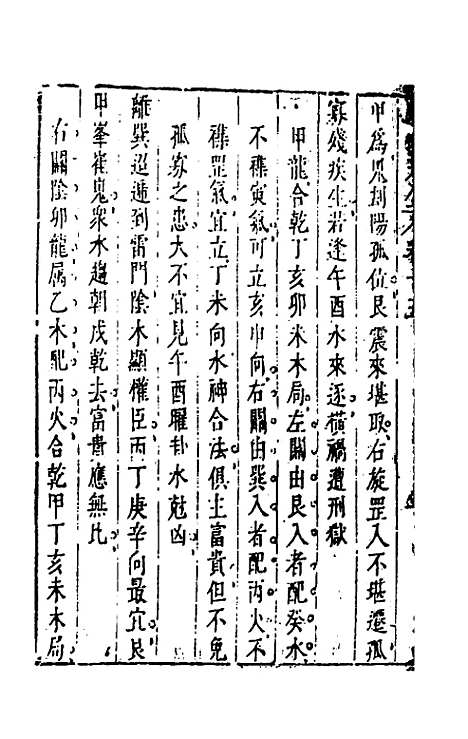 甲為鬼刦陽孤位艮震來堪取右旋罡入不堪遷孤
寡殘疾生若逢午酉水來逐橫禍遭刑獄
甲龍合乾丁亥卯未木局左關由艮入者配癸水
不雜寅氣可立亥申向右關由巽入者配丙火不
雜罡氣宜立丁未向水神合法俱主富貴但不免
孤寡之患大不宜見午酉曜卦水尅凶
離巽迢遞到雷門陰木顯權臣丙丁庚辛向最宜艮
甲峯崔嵬衆水趨朝戌乾去富貴應無比
右關陰卯龍属乙木配丙火合乾甲丁亥未木局